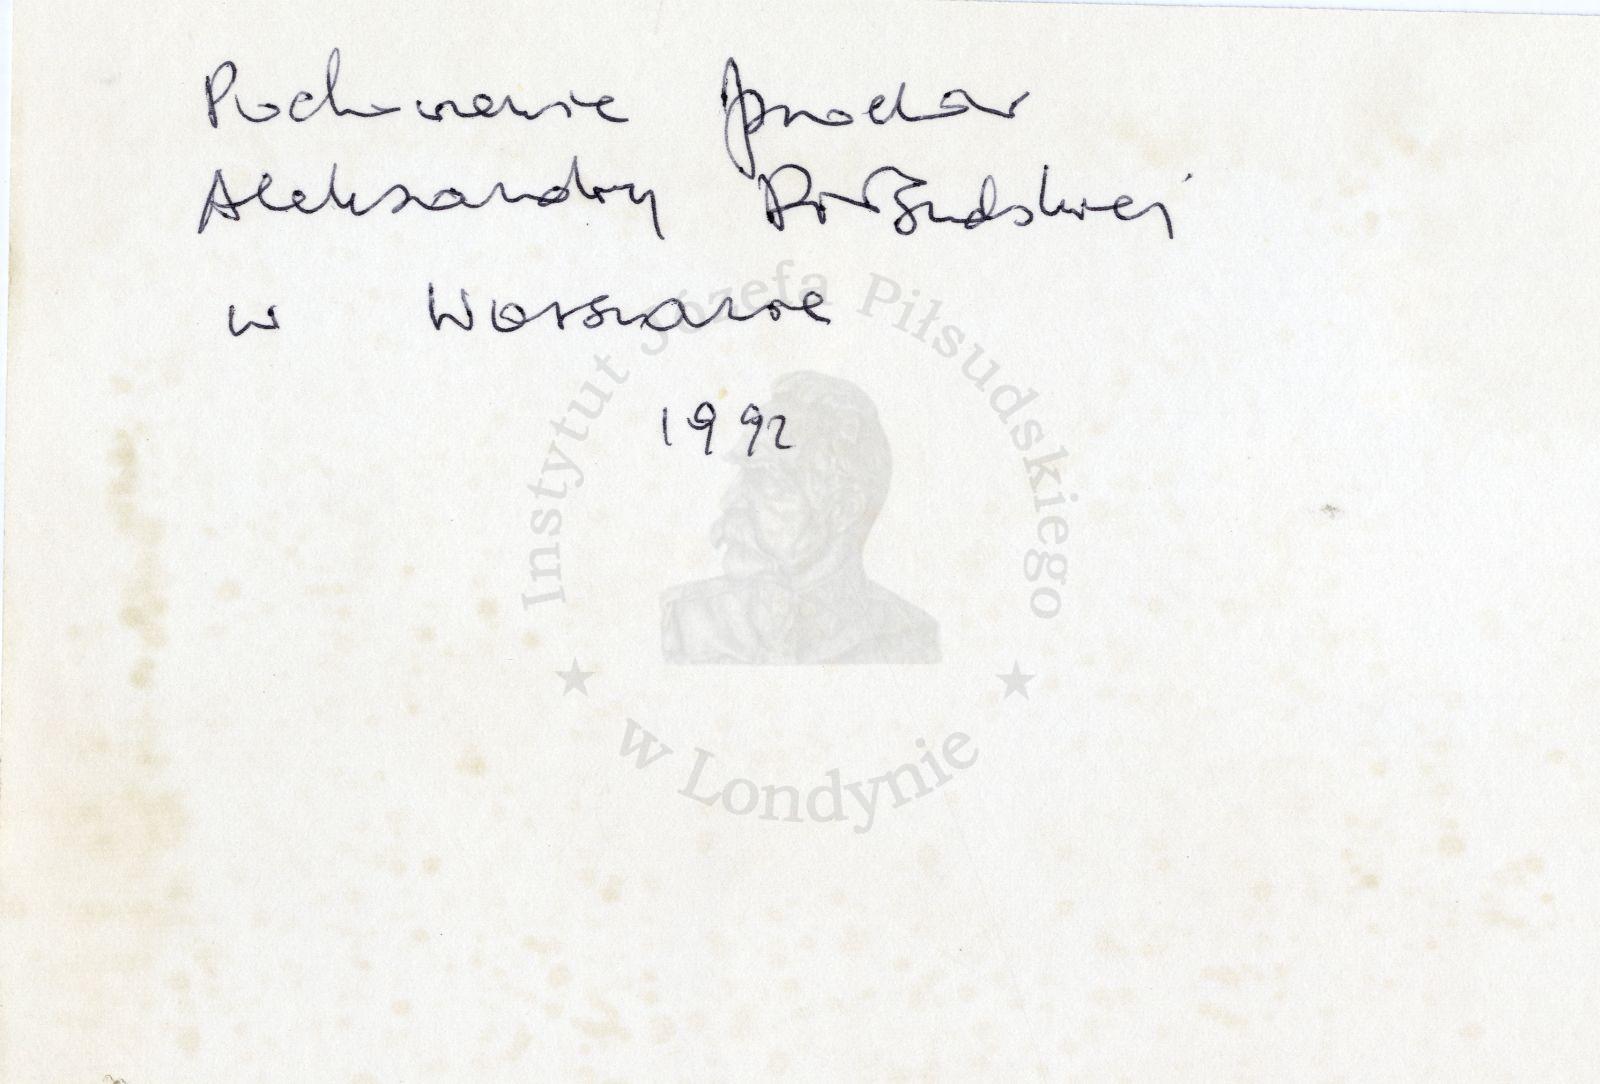 Pochowanie prochów
Aleksandry Piłsudskiej
w Warszawie
1992
Instytut Józefa Piłsudskiego
★ w Londynie ★